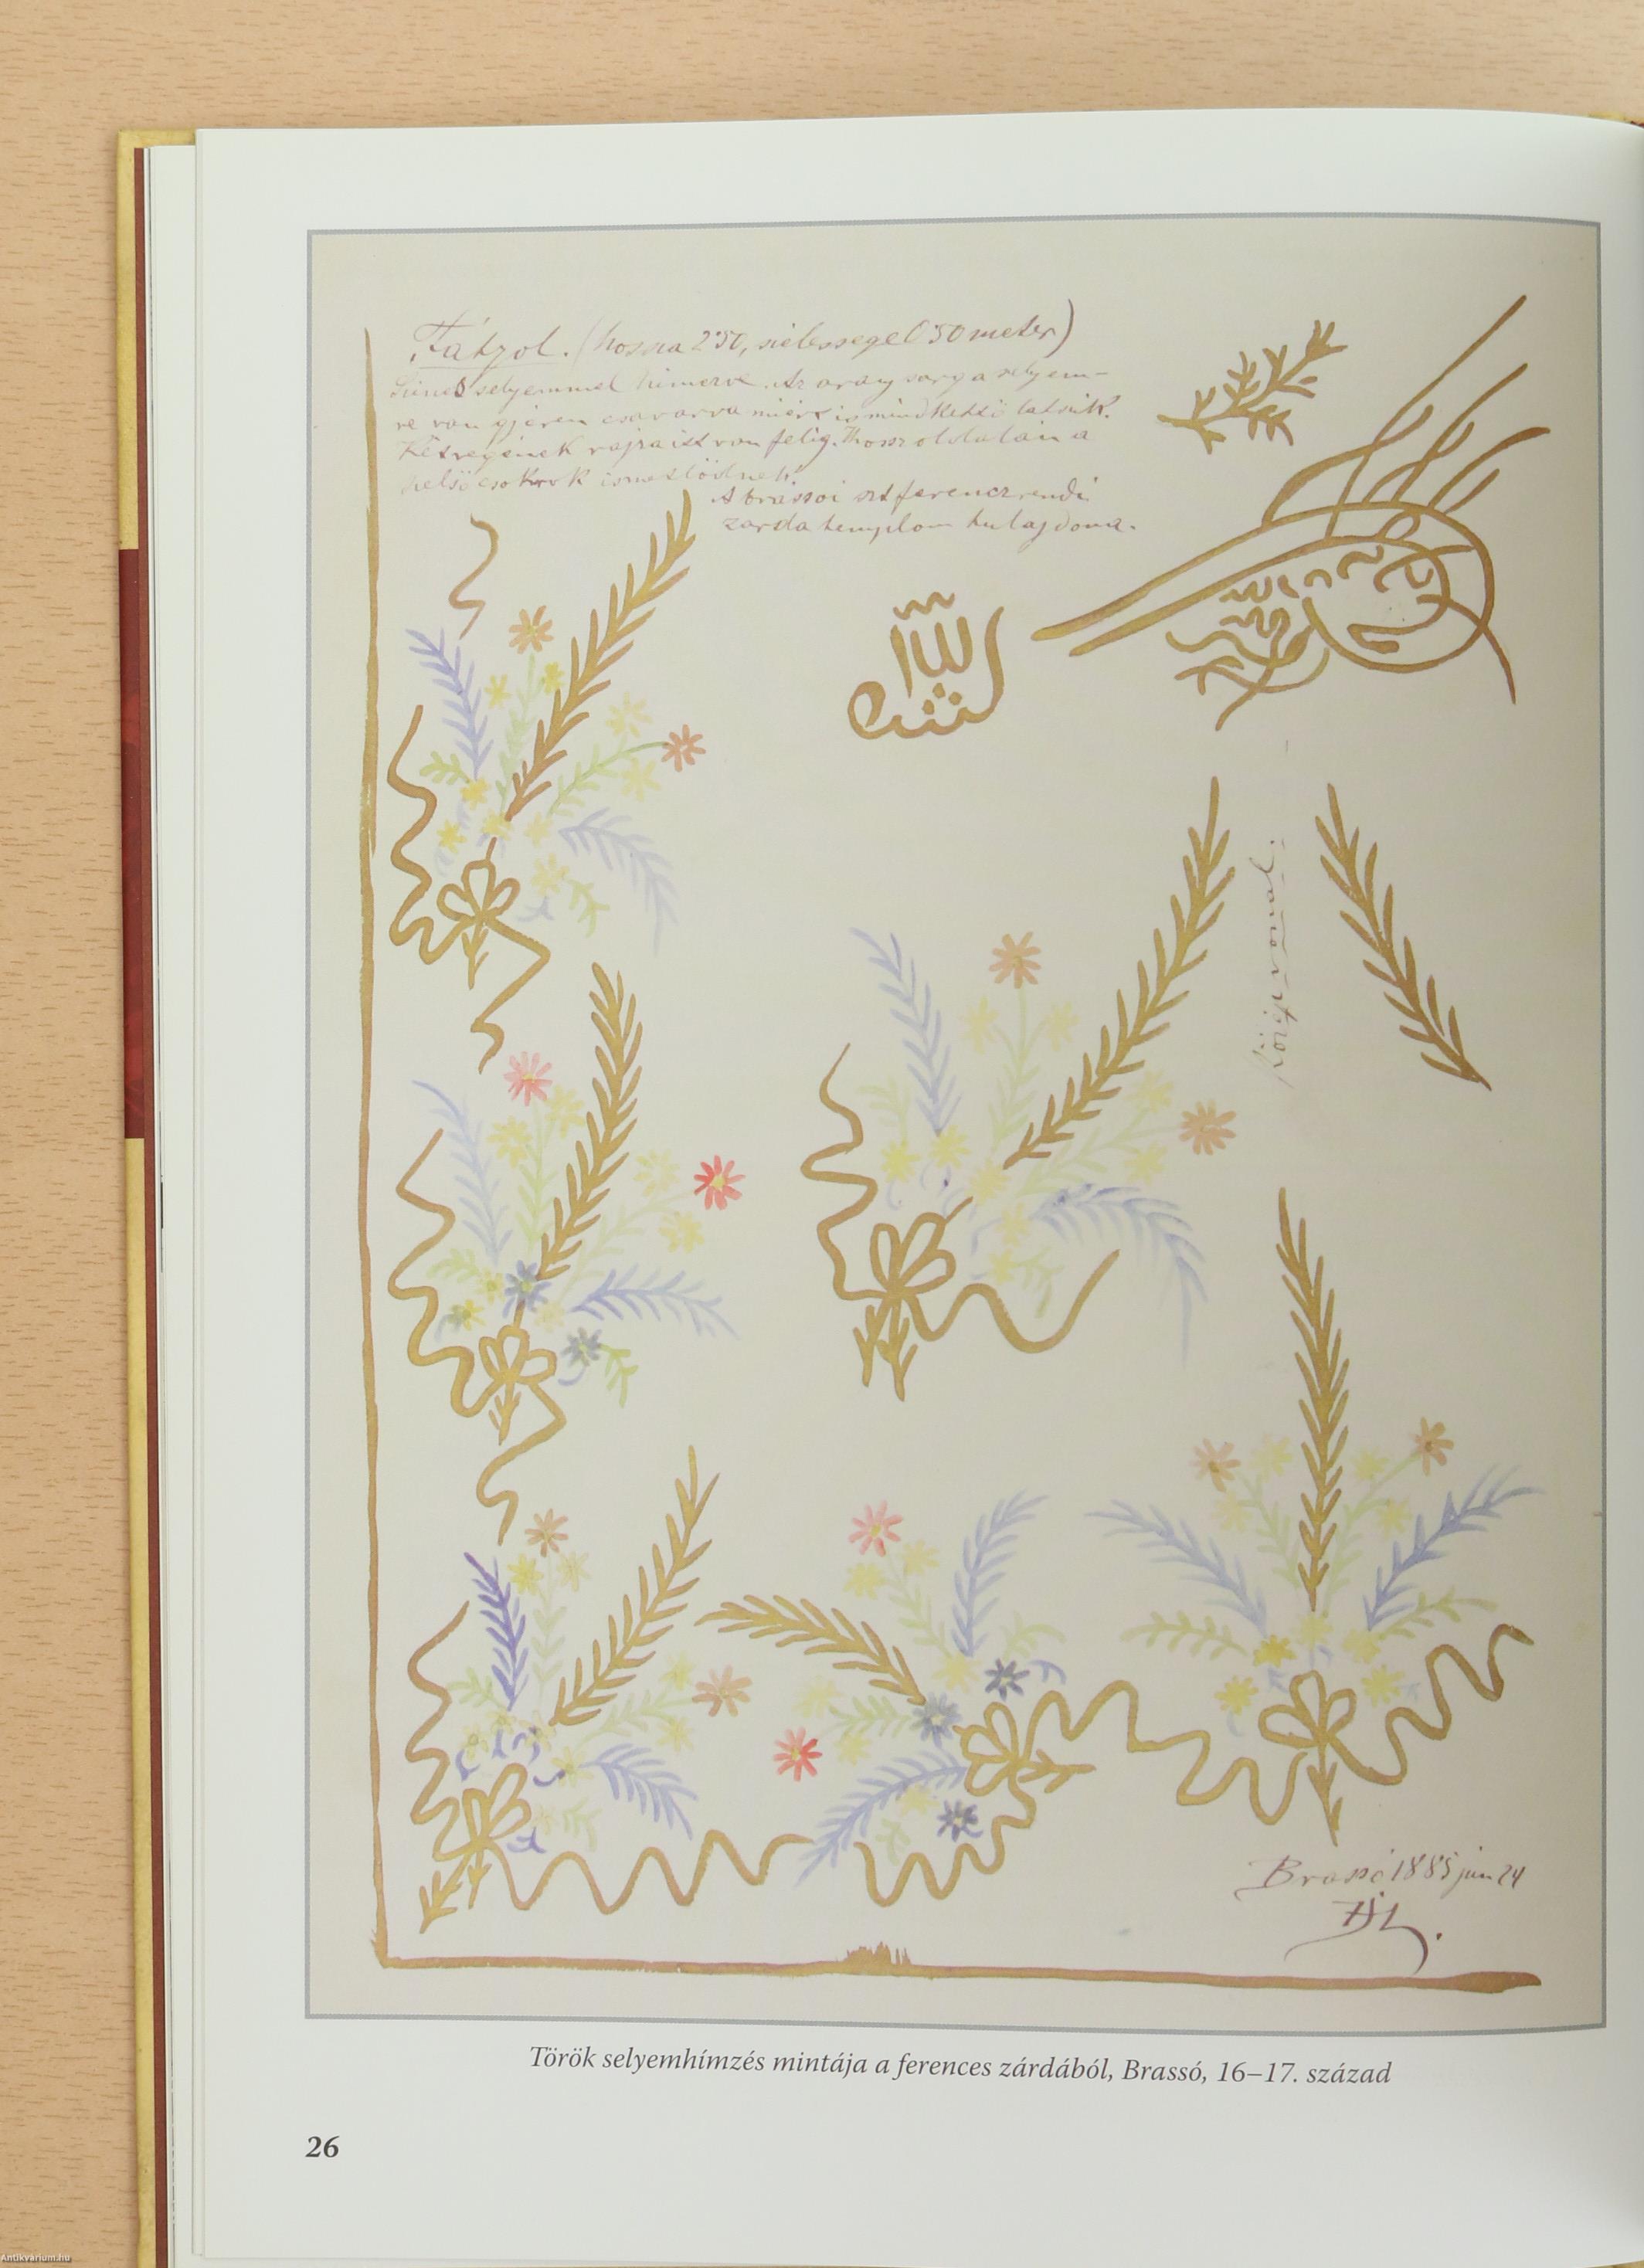 Fátyol. (hossa 2·50, szélessege 0·50 meter)
Sines selyemmel himezve. Az arany sarga selyem-
re van gjéren csavarva miért is mindkettö latsuik.
Kétvegének rajza itt van felig. Hossz oldalain a
belsö csokrok ismetlödnek.
A brassoi szt ferenczrendi
zarda templom tulajdona.
Középvonal.
Brassó 1885 jun 24
Török selyemhímzés mintája a ferences zárdából, Brassó, 16–17. század
26
Antikvarium.hu